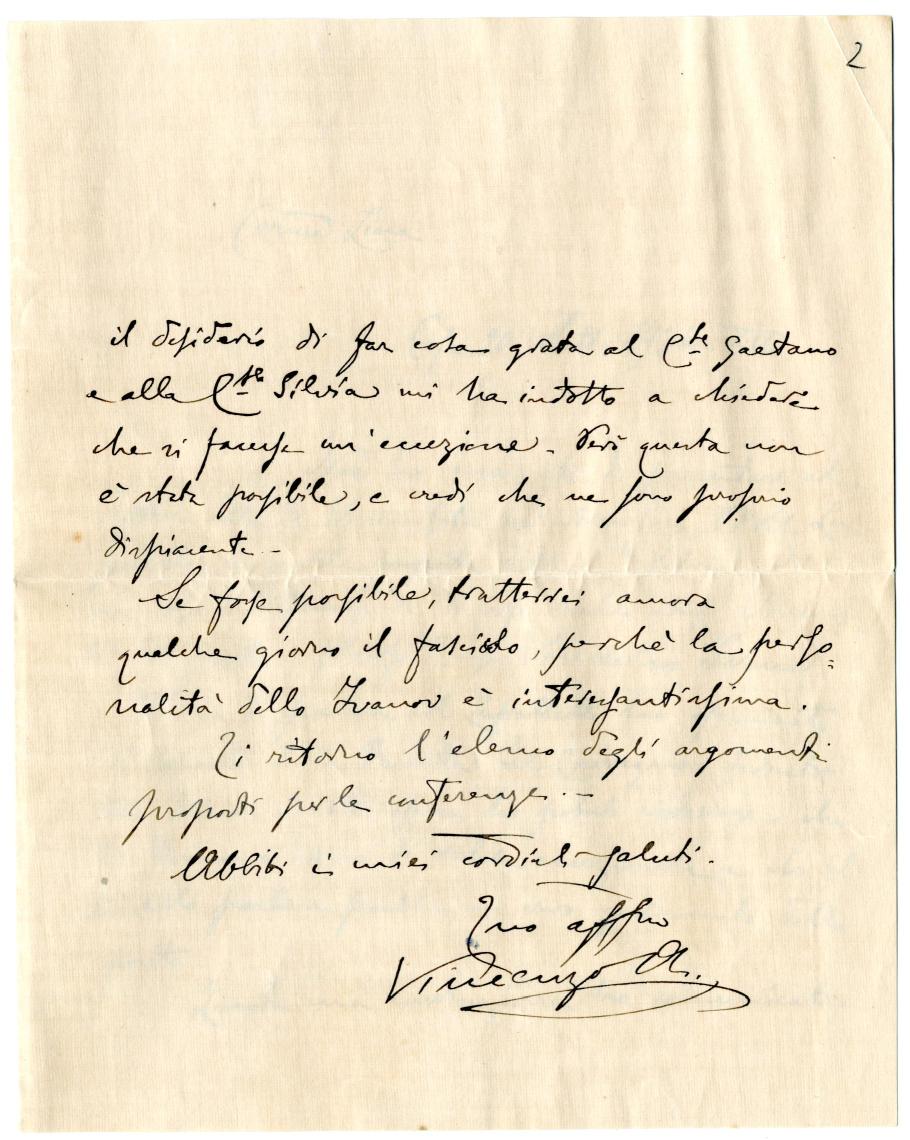 2
il desiderio di far cosa grata al Cte Gaetano
e alla Ctessa Silvia mi ha indotto a chiedere
che si facesse un'eccezione. Però questa non
è stata possibile, e credi che ne sono proprio
dispiacente.-
Se fosse possibile, tratterrei ancora
qualche giorno il fascicolo, perchè la perso=
nalità dello Ivanov è interessantissima.
Ti ritorno l'elenco degli argomenti
proposti per le conferenze.-
Abbiti i miei cordiali saluti.
Tuo affmo
Vincenzo A.